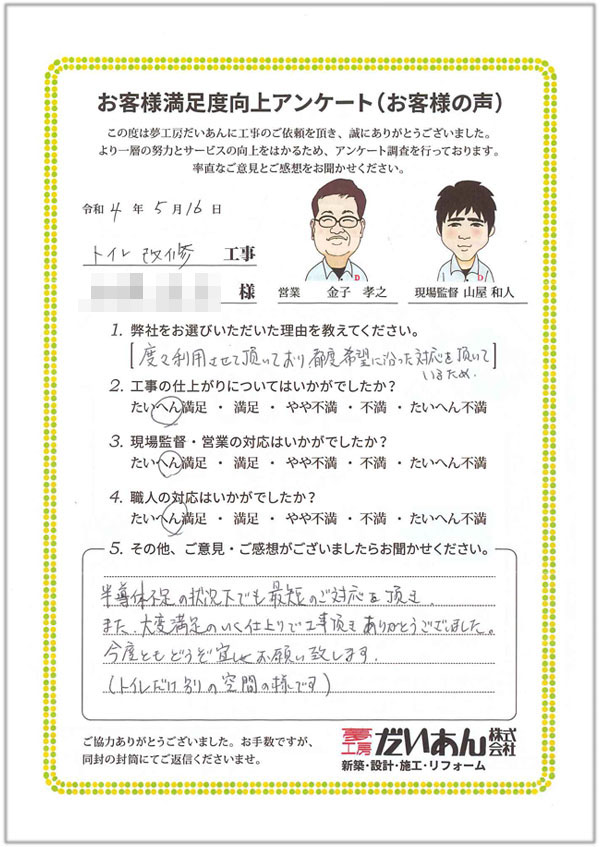 お客様満足度向上アンケート（お客様の声）
この度は夢工房だいあんに工事のご依頼を頂き、誠にありがとうございました。
より一層の努力とサービスの向上をはかるため、アンケート調査を行っております。
率直なご意見とご感想をお聞かせください。
令和 4 年 5 月 16 日
トイレ改修 工事
様
営業 金子 孝之
現場監督 山屋 和人
1. 弊社をお選びいただいた理由を教えてください。
[度々利用させて頂いており、都度希望に沿った対応を頂いて
いるため。
2. 工事の仕上がりについてはいかがでしたか？
たいへん満足 ・ 満足 ・ やや不満 ・ 不満 ・ たいへん不満
3. 現場監督・営業の対応はいかがでしたか？
たいへん満足 ・ 満足 ・ やや不満 ・ 不満 ・ たいへん不満
4. 職人の対応はいかがでしたか？
たいへん満足 ・ 満足 ・ やや不満 ・ 不満 ・ たいへん不満
5. その他、ご意見・ご感想がございましたらお聞かせください。
半導体不足の状況下でも最短のご対応を頂き、
また、大変満足のいく仕上りで工事頂き ありがとうございました。
今度ともどうぞ宜しくお願い致します。
（トイレだけ別の空間の様です）
ご協力ありがとうございました。お手数ですが、
同封の封筒にてご返信くださいませ。
夢工房 だいあん 株式会社
新築・設計・施工・リフォーム